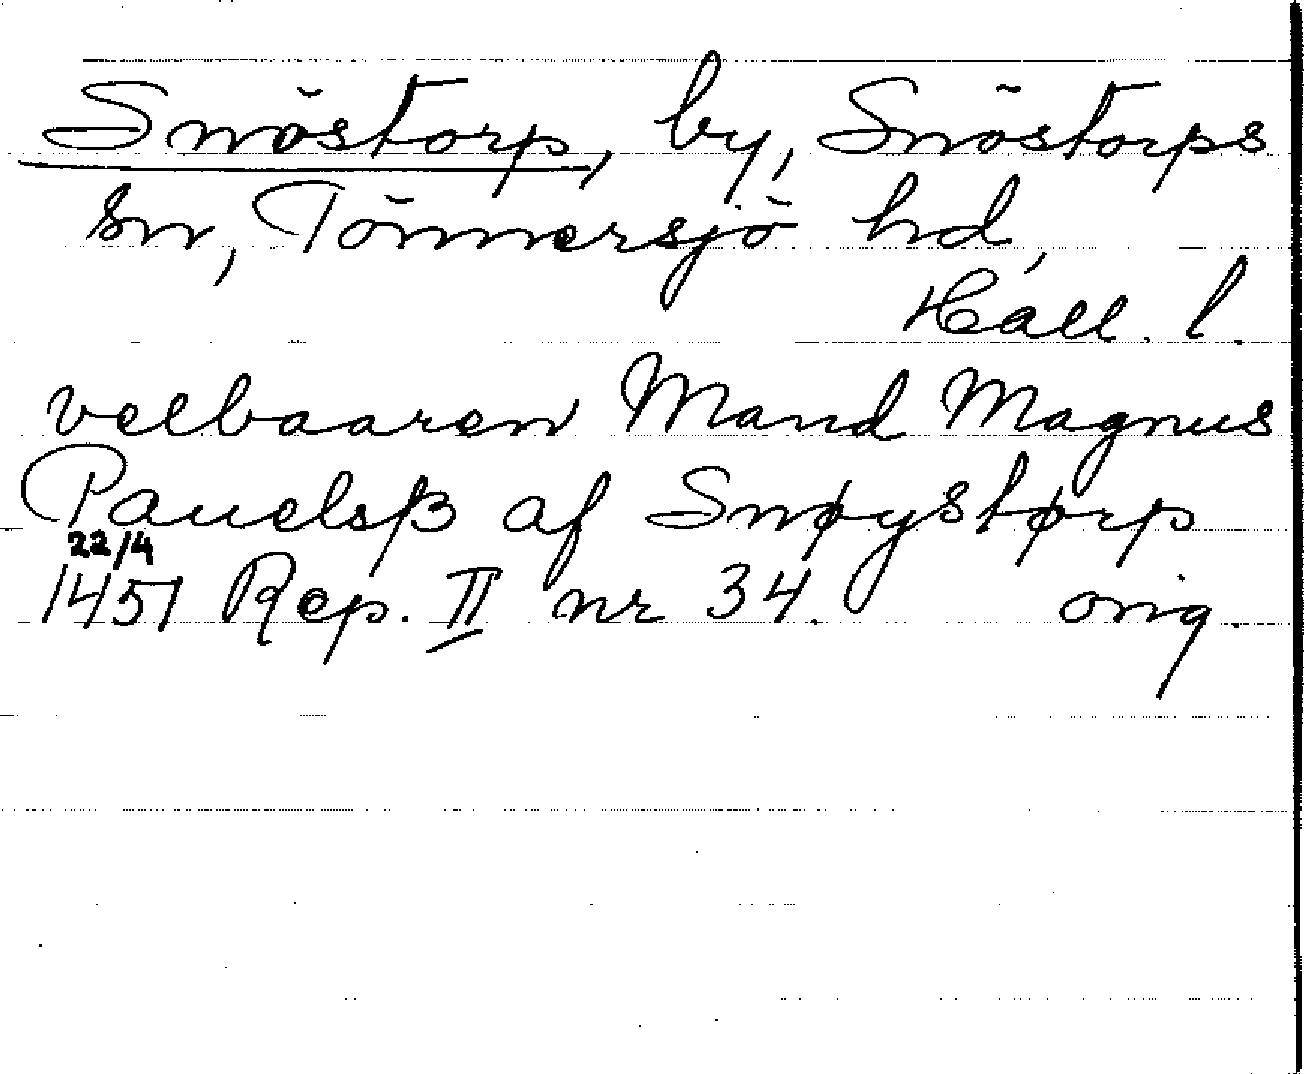 Snöstorp, by, Snöstorps
sn, Tönnersjö hd,
Hall. l.
velbaaren Mand Magnus
Pauelsß af Snøystørp
22/4
1451 Rep. II nr 34. orig.